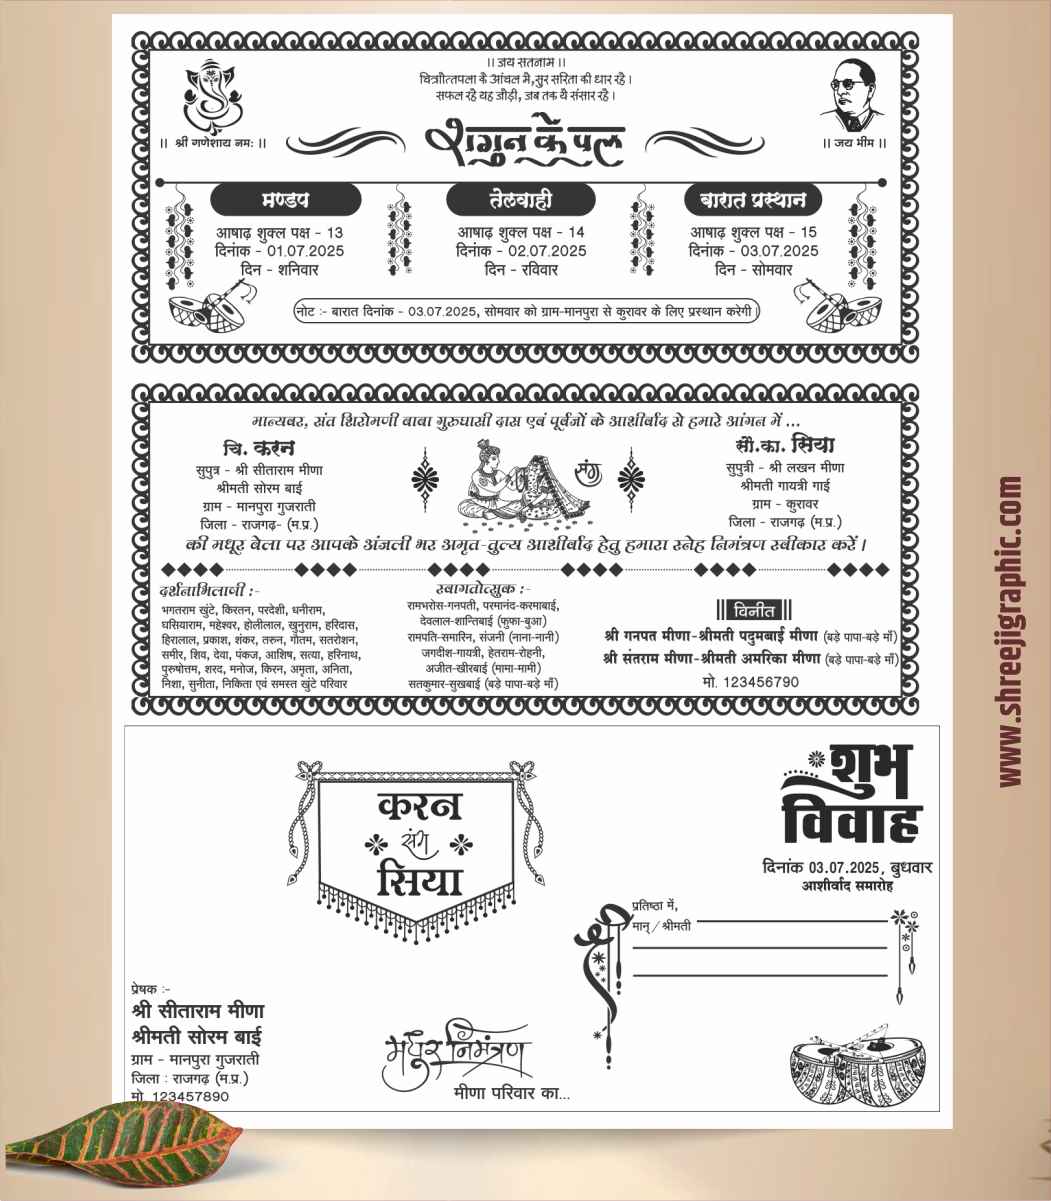 || जय सतनाम ||
चित्रौत्तपला के आंचल मे,सुर सरिता की धार रहै।
सफल रहै यह जौड़ी, जब तक यै संसार रहै।
|| श्री गणेशाय नम: ||
शगुन के पल
|| जय भीम ||
मण्डप
तेलवाही
बारात प्रस्थान
आषाढ़ शुक्ल पक्ष - 13
दिनांक - 01.07.2025
दिन - शनिवार
आषाढ़ शुक्ल पक्ष - 14
दिनांक - 02.07.2025
दिन - रविवार
आषाढ़ शुक्ल पक्ष - 15
दिनांक - 03.07.2025
दिन - सोमवार
नोट :- बारात दिनांक - 03.07.2025, सोमवार को ग्राम-मानपुरा से कुरावर के लिए प्रस्थान करेगी।
मान्यवर, संत शिरोमणी बाबा गुरुघासी दास एवं पूर्वजों के आशीर्वाद से हमारे आंगन में ...
चि. करन
सुपुत्र - श्री सीताराम मीणा
श्रीमती सोरम बाई
ग्राम - मानपुरा गुजराती
जिला - राजगढ़- (म.प्र.)
संग
सौ.का. सिया
सुपुत्री - श्री लखन मीणा
श्रीमती गायत्री गाई
ग्राम - कुरावर
जिला - राजगढ़ (म.प्र.)
की मधूर बेला पर आपके अंजली भर अमृत-तुल्य आशीर्वाद हेतु हमारा स्नेह निमंत्रण स्वीकार करें।
दर्शनाभिलाषी :-
भगतराम खुंटे, किरतन, परदेशी, धनीराम,
घसियाराम, महेश्वर, होलीलाल, खुनुराम, हरिदास,
हिरालाल, प्रकाश, शंकर, तरुन, गौतम, सतरोशन,
समीर, शिव, देवा, पंकज, आशिष, सत्या, हरिनाथ,
पुरुषोत्तम, शरद, मनोज, किरन, अमृता, अनिता,
निशा, सुनीता, निकिता एवं समस्त खुंटे परिवार
स्वागतोत्सुक :-
रामभरोस-गनपती, परमानंद-करमाबाई,
देवलाल-शान्तिबाई (फुफा-बुआ)
रामपति-समारिन, संजनी (नाना-नानी)
जगदीश-गायत्री, हेतराम-रोहनी,
अजीत-खीरबाई (मामा-मामी)
सतकुमार-सुखबाई (बड़े पापा-बड़े माँ)
|| विनीत ||
श्री गनपत मीणा-श्रीमती पदुमबाई मीणा (बड़े पापा-बड़े माँ)
श्री संतराम मीणा-श्रीमती अमरिका मीणा (बड़े पापा-बड़े माँ)
मो. 123456790
करन
संग
सिया
शुभ
विवाह
दिनांक 03.07.2025, बुधवार
आशीर्वाद समारोह
श्री
प्रतिष्ठा में,
मान् / श्रीमती
प्रेषक :-
श्री सीताराम मीणा
श्रीमती सोरम बाई
ग्राम - मानपुरा गुजराती
जिला : राजगढ़ (म.प्र.)
मो. 123457890
मधूर निमंत्रण
मीणा परिवार का...
www.shreejigraphic.com